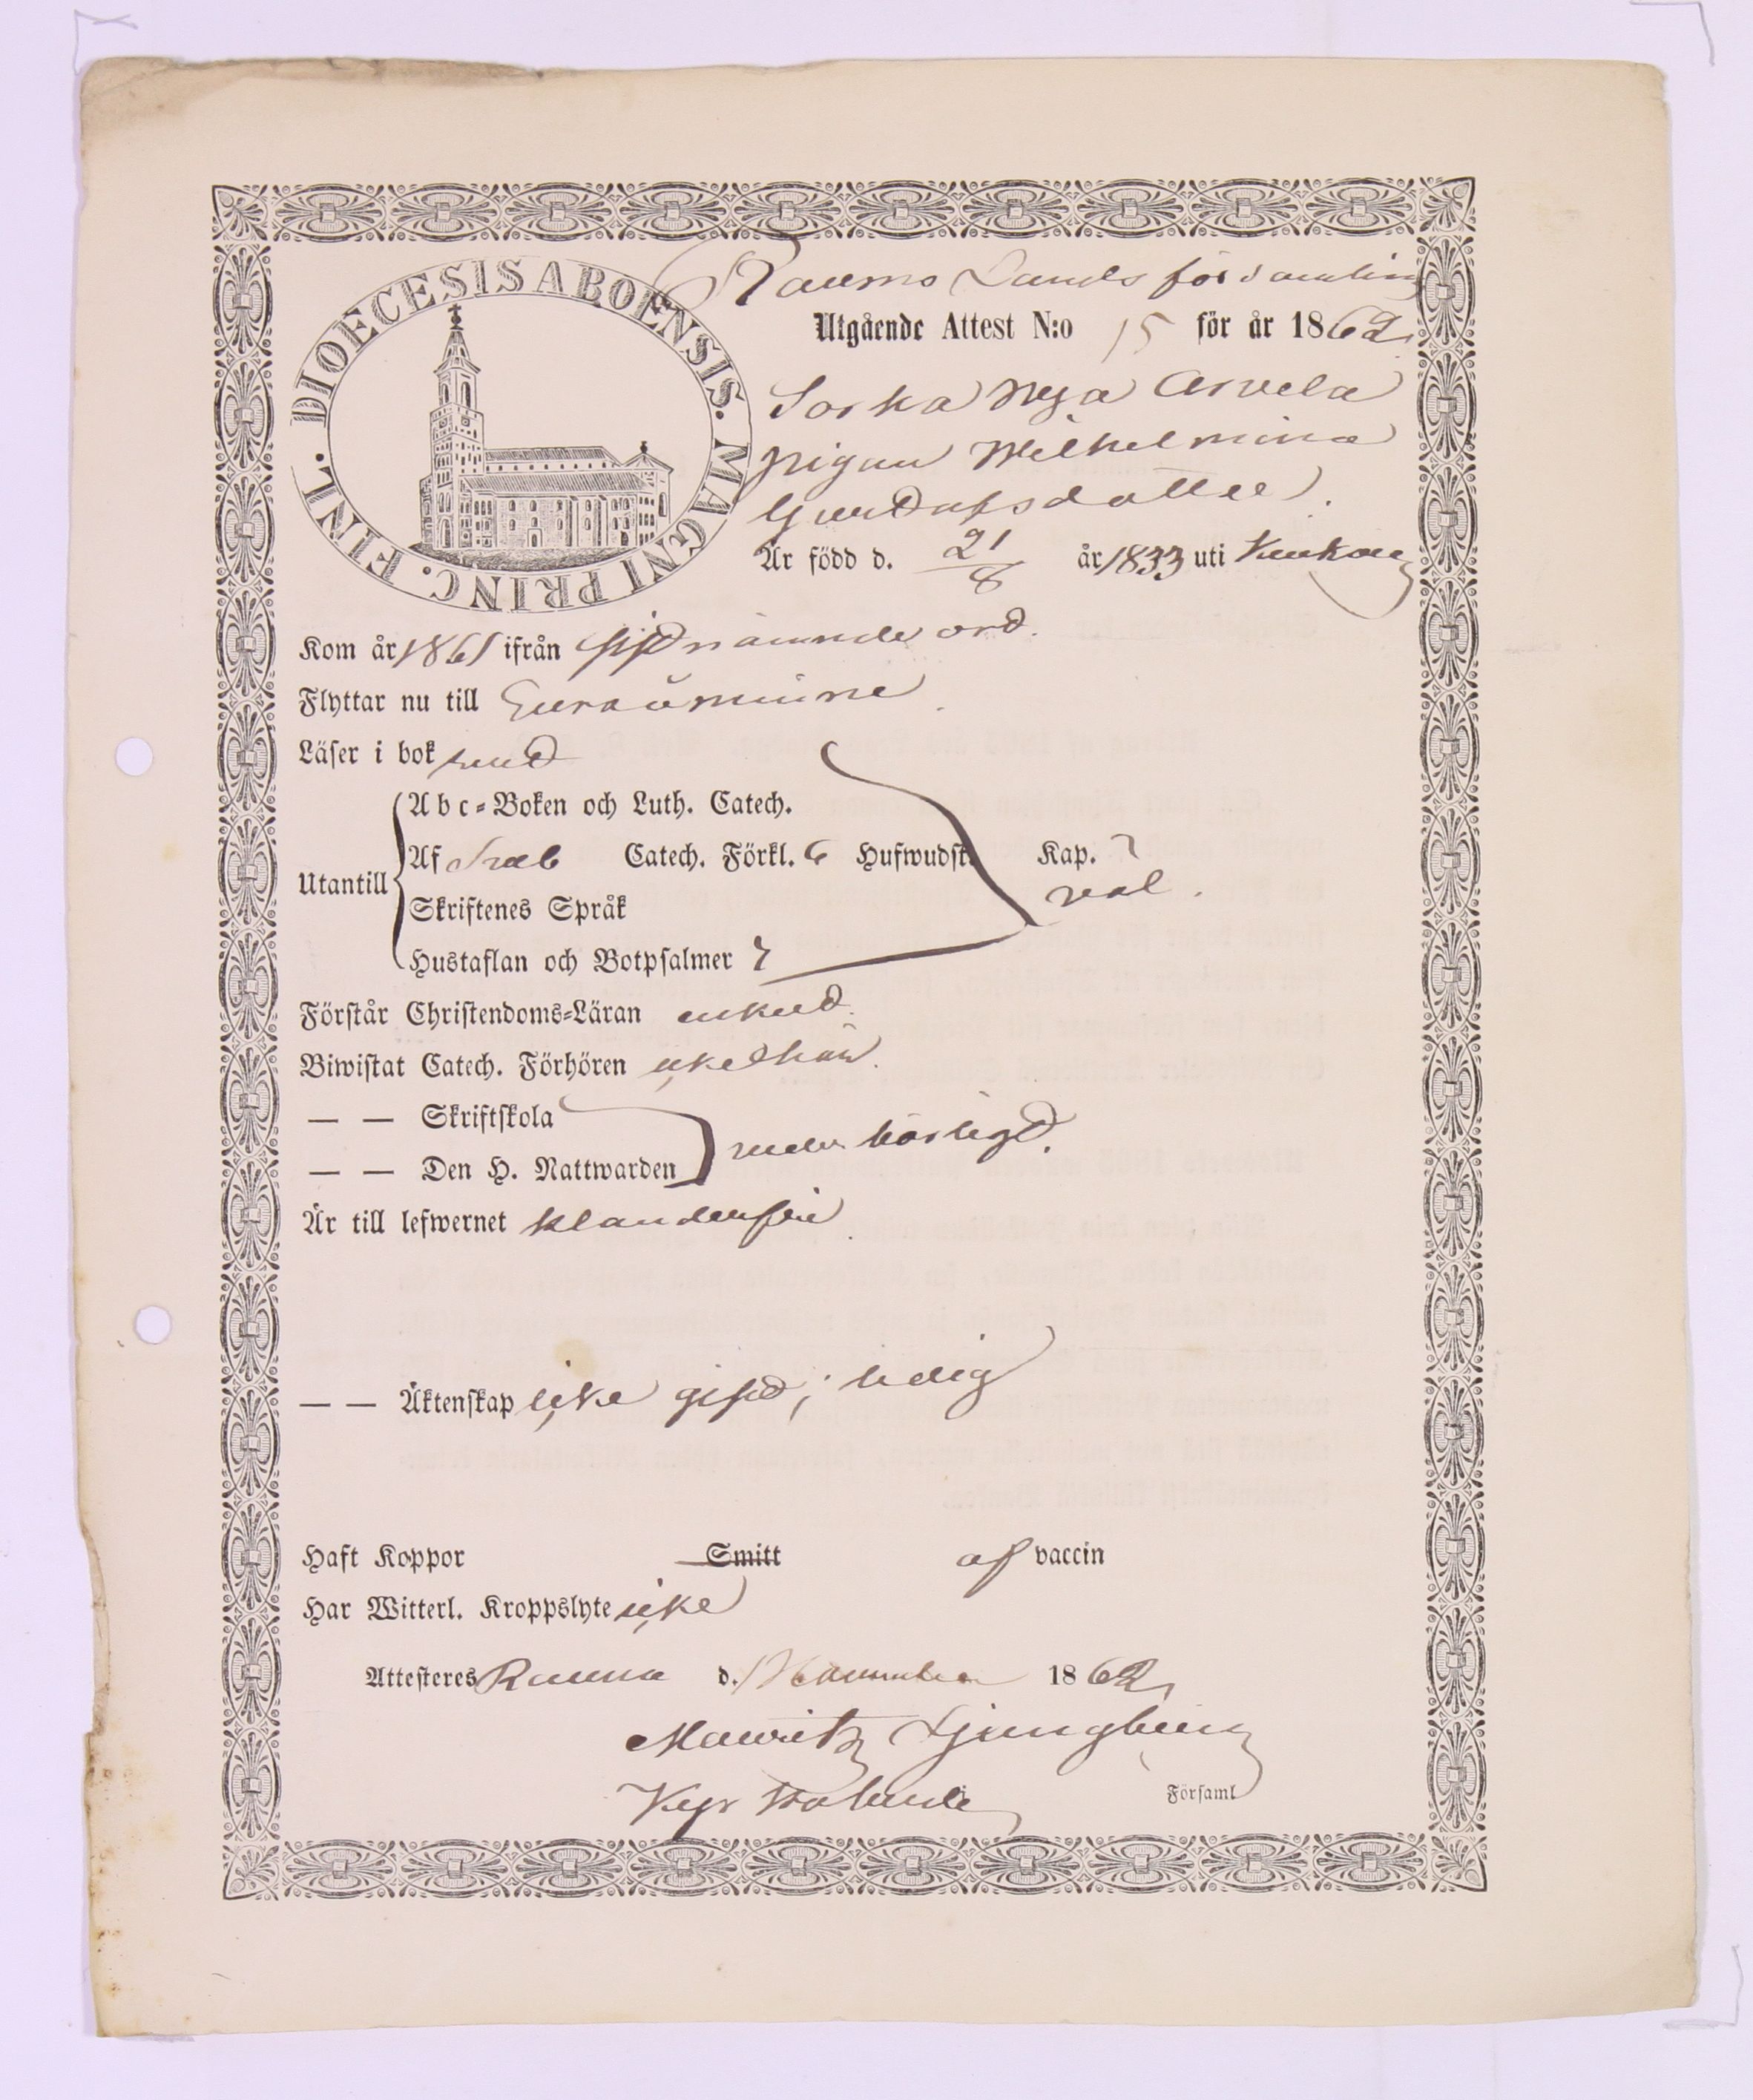 DIOECESIS ABOENSIS. MAGNI PRINC. FINL.
Raumo Lands församling
Utgående Attest N:o 15 för år 1862
Sorka Nya Arvela
pigan Wilhelmina
Gustafsdotter.
Är född d. 21/8 år 1833 uti
Kom år 1861 ifrån sistnämnde ort.
Flyttar nu till Euraåminne.
Läser i bok rent
Abc-Boken och Luth. Catech.
Utantill Af Sveb Catech. Förkl. 6 Hufwudst. Kap. 7
Skriftenes Språk väl.
Hustaflan och Botpsalmer 7
Förstår Christendoms-Läran enkelt.
Biwistat Catech. Förhören
— — Skriftskola
— — Den H. Nattwarden behörigt.
Är till lefwernet klanderfri.
— — Äktenskap icke gift; ledig
Haft Koppor Smitt af vaccin
Har Witterl. Kroppslyte icke
Attesteres Raumo d. 1862
Mauritz Ljungberg
Församl